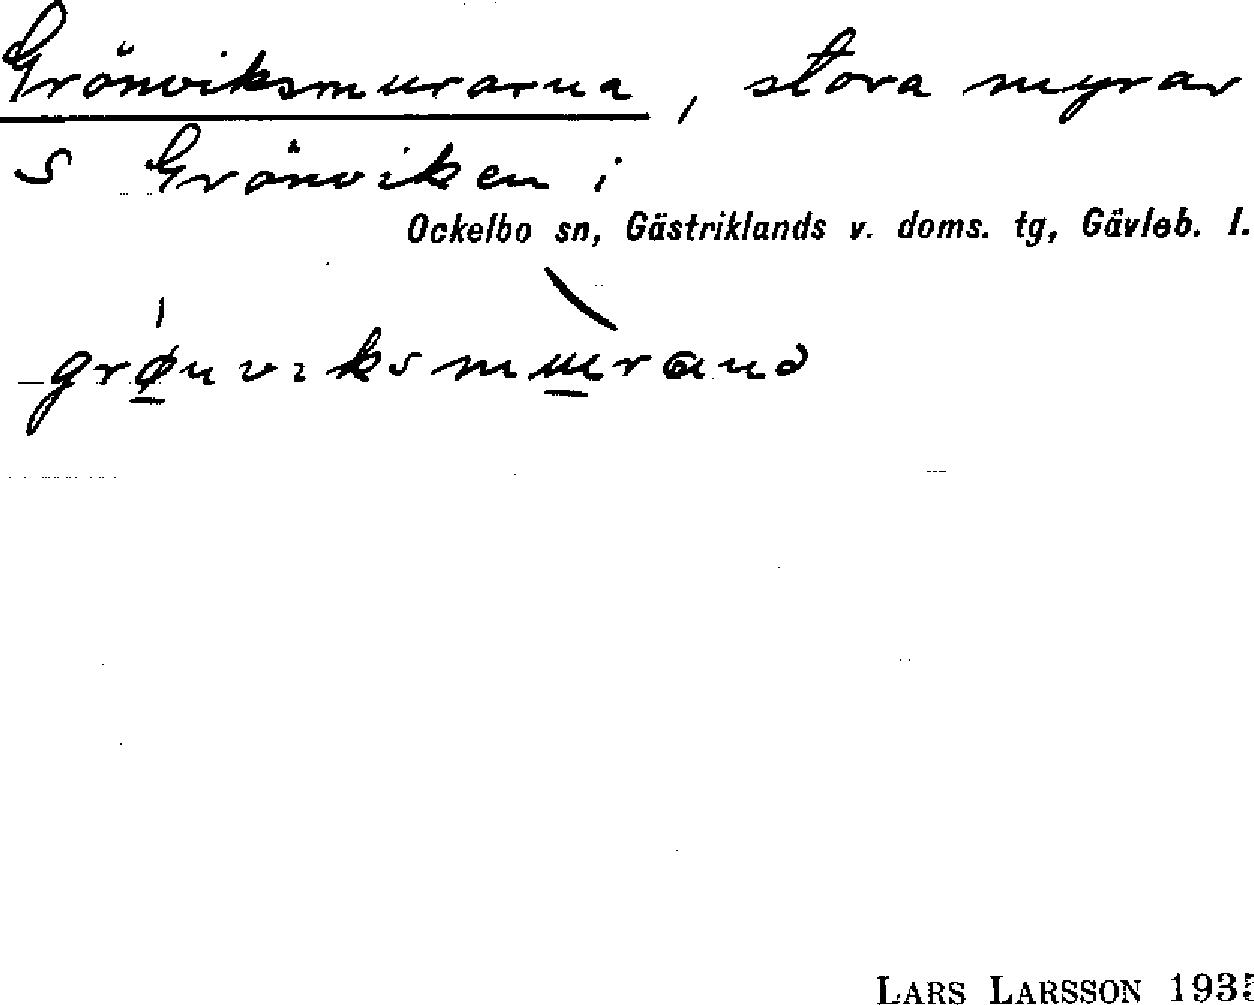 Grönviksmurarna, stora myrar
S Grönviken i
Ockelbo sn, Gästriklands v. doms. tg, Gävleb. l.
LARS LARSSON